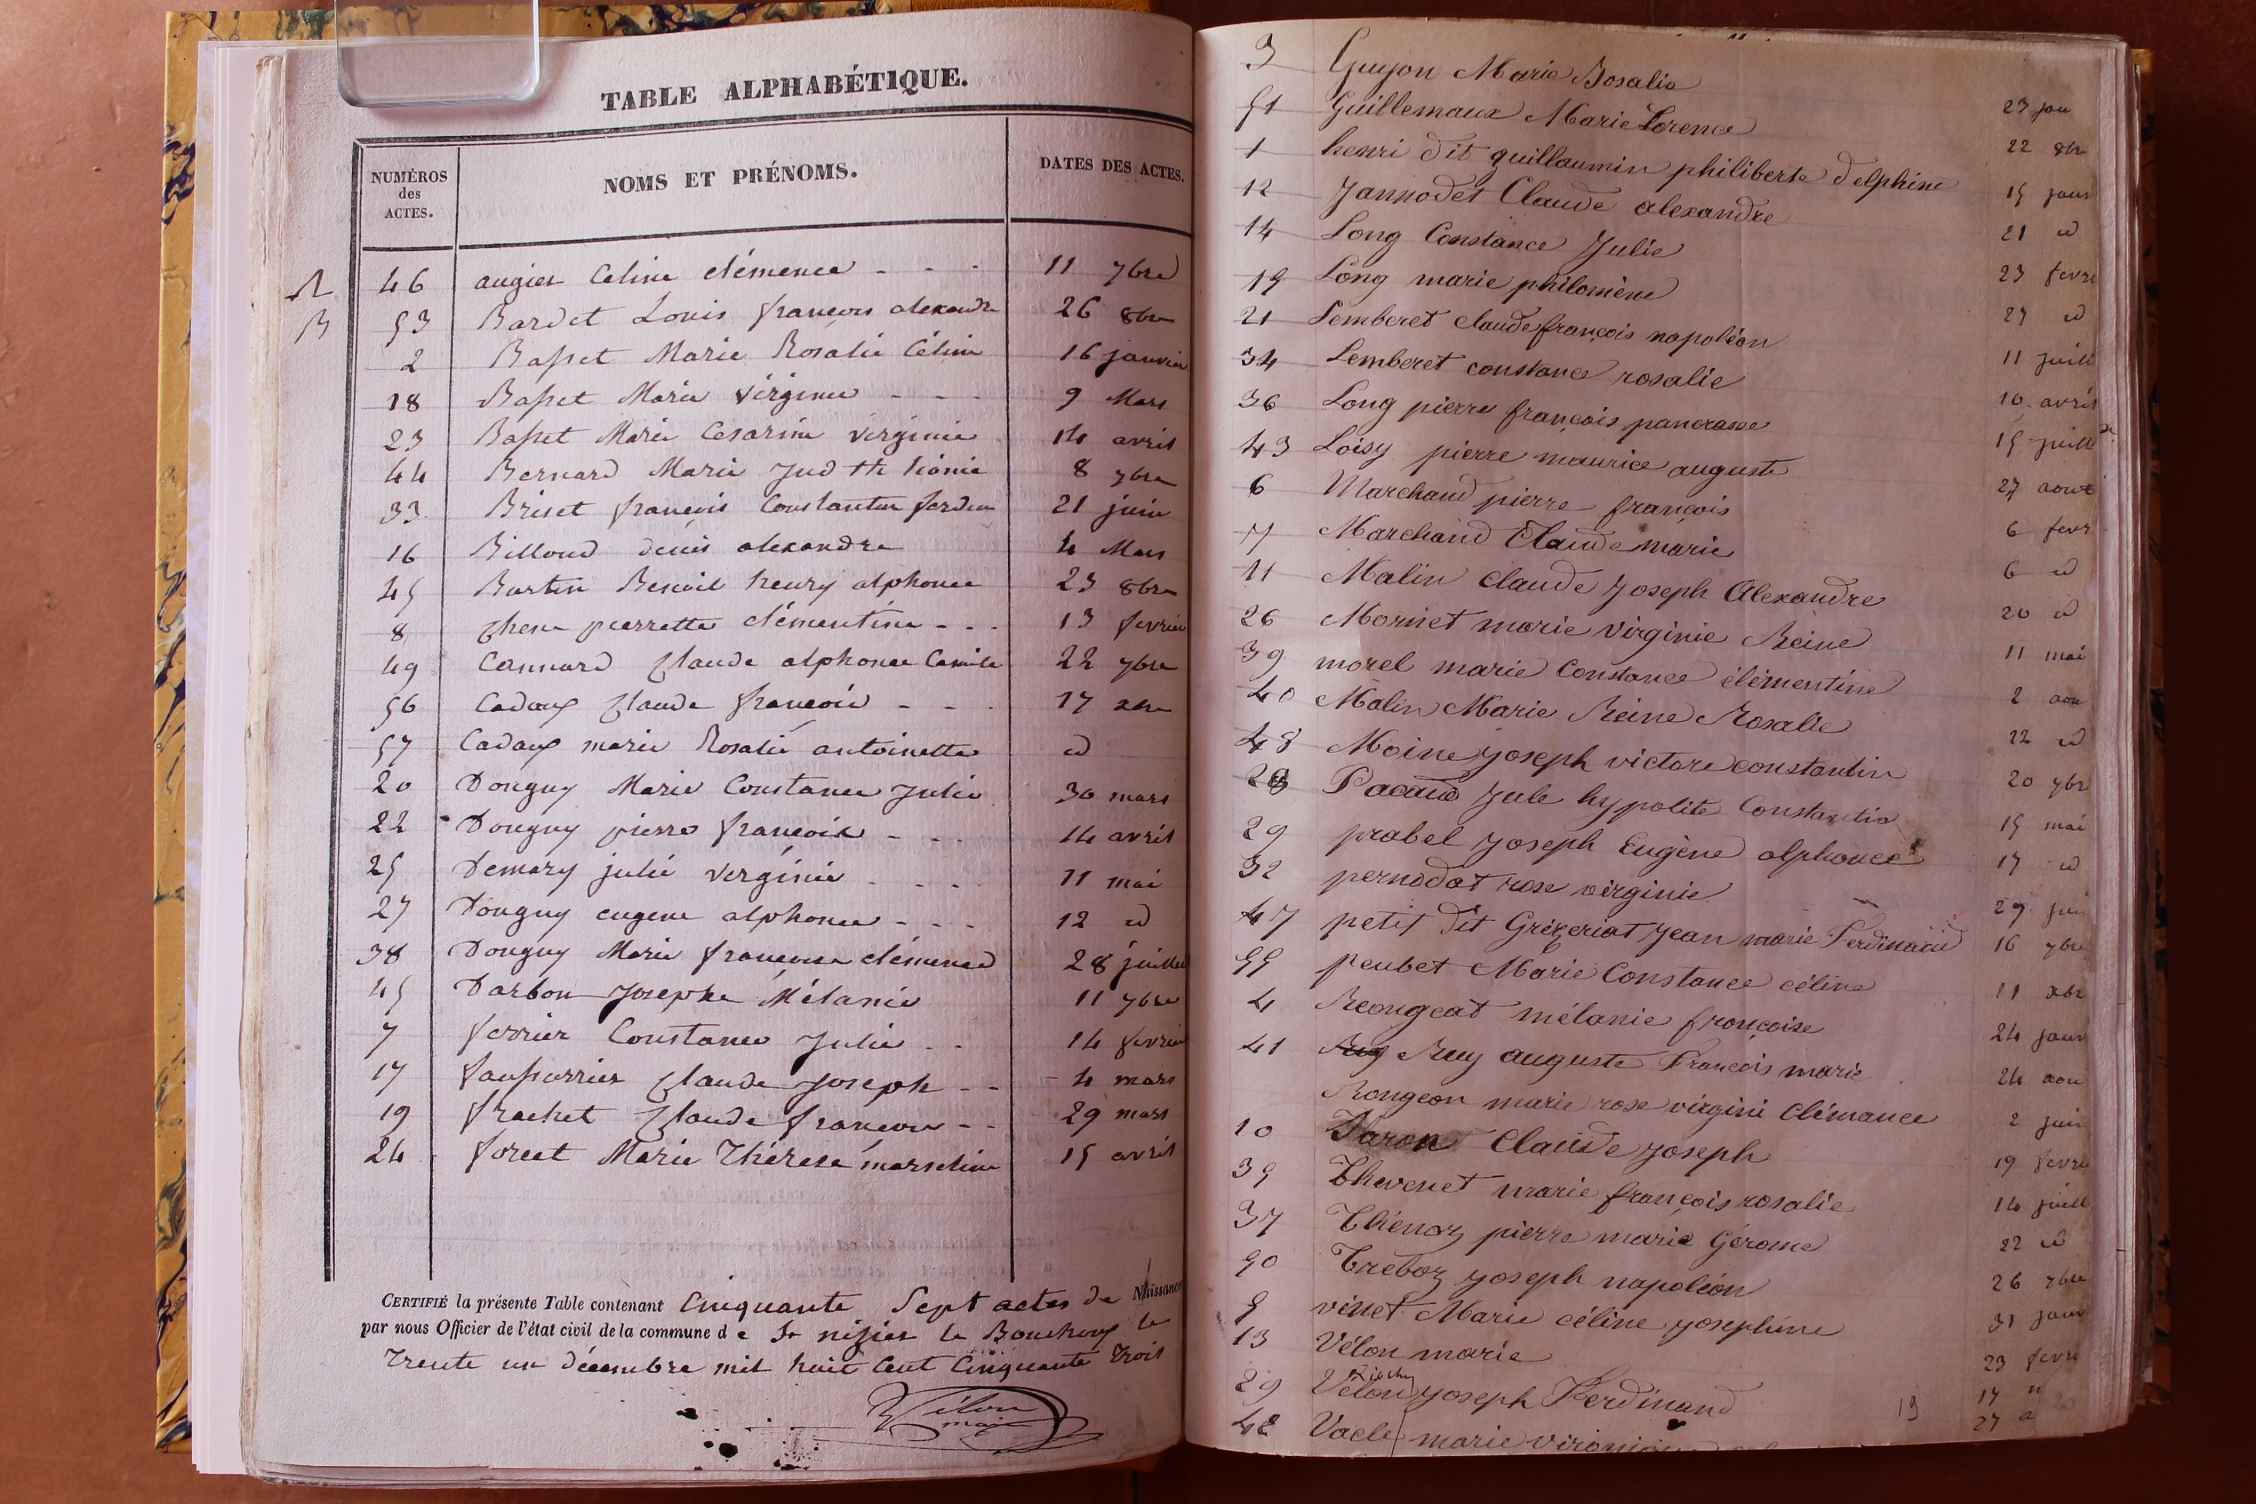 TABLE ALPHABÉTIQUE.
NUMÉROS des ACTES. NOMS ET PRÉNOMS. DATES DES ACTES.
46 augier Celine clémence - - - 11 7bre
B 53 Bardet Louis françois alexandre 26 8bre
2 Basset Marie Rosalie Céline 16 janvier
18 Basset Marie Virginie - - - 9 Mars
23 Basset Marie Cesarine virginie 14 avril
44 Bernard Marie Judith 8 7bre
33 Briset françois Constantin 21 juin
16 Billoud denis alexandre 4 Mars
45 Burtin Benoit henry alphonse 23 8bre
8 pierrette clémentine - - - 13 fevrier
49 Connard Claude alphonse Camile 22 7bre
56 Cadoux Claude françois - - - 17 xbre
57 Cadoux marie Rosalie antoinette id
20 Donguy Marie Constance Julie 30 mars
22 Donguy pierre françois - - - 14 avril
25 Demary julie virginie - - - 11 mai
27 Donguy eugene alphonse - - - 12 id
38 Donguy Marie françoise clémence 28 juillet
45 Darbon Josephe Mélanie 11 7bre
7 ferrier Constance Julie - - 14 fevrier
17 Claude Joseph - - 4 mars
19 frachet Claude françois - - 29 mars
24 foreet Marie Thérese marceline 15 avril
CERTIFIÉ la présente Table contenant Cinquante Sept actes de Naissance
par nous Officier de l'état civil de la commune de St nizier le Bouchoux le
Trente un décembre mil huit Cent Cinquante trois
Vélon
maire
3 Guyon Marie Rosalie 23 jan
51 Guillemaux Marie Lorence 22 8bre
1 henri dit guillaumin philiberte delphine 15 janv
12 Jannodet Claude alexandre 21 id
14 Long Constance Julie 23 fevri
15 Long marie philomène 27 id
21 Lemberet claude françois napoléon 11 juill
34 Lemberet constance rosalie 10 avril
36 Long pierre françois pancrasse 15 juill
43 Loisy pierre maurice auguste 27 aout
6 Marchand pierre françois 6 fevr
7 Marchand Claude marie 6 id
11 Malin claude Joseph Alexandre 20 id
26 Mornet marie virginie Reine 11 mai
39 morel marie Constance clémentine 2 aou
40 Malin Marie Reine Rosalie 22 id
48 Moine joseph victore constantin 20 7br
28 Pacaud Jule hypolite Constantin 15 mai
29 prabel Joseph Eugène alphonce 17 id
32 pernodat rose virginie 27 jui
47 petit dit Grézeriat Jean marie Ferdinand 16 7bre
55 peubet Marie Constance céline 11 xbr
4 Reongeat mélanie françoise 24 janv
41 Ruy Ruy auguste François marie 24 aou
Rongeon marie rose virgini clémance 2 juin
10 Taron Claude joseph 19 fevri
35 Thevenet marie françois rosalie 14 juill
37 Thénoz pierre marie Gérome 22 id
50 Treboz Joseph napoléon 26 7bre
5 vinet Marie céline josephine 31 janv
13 Vélon marie 23 fevr
29 Vélon joseph Ferdinand 19 17 "
42 Vacle marie virginie 27 a